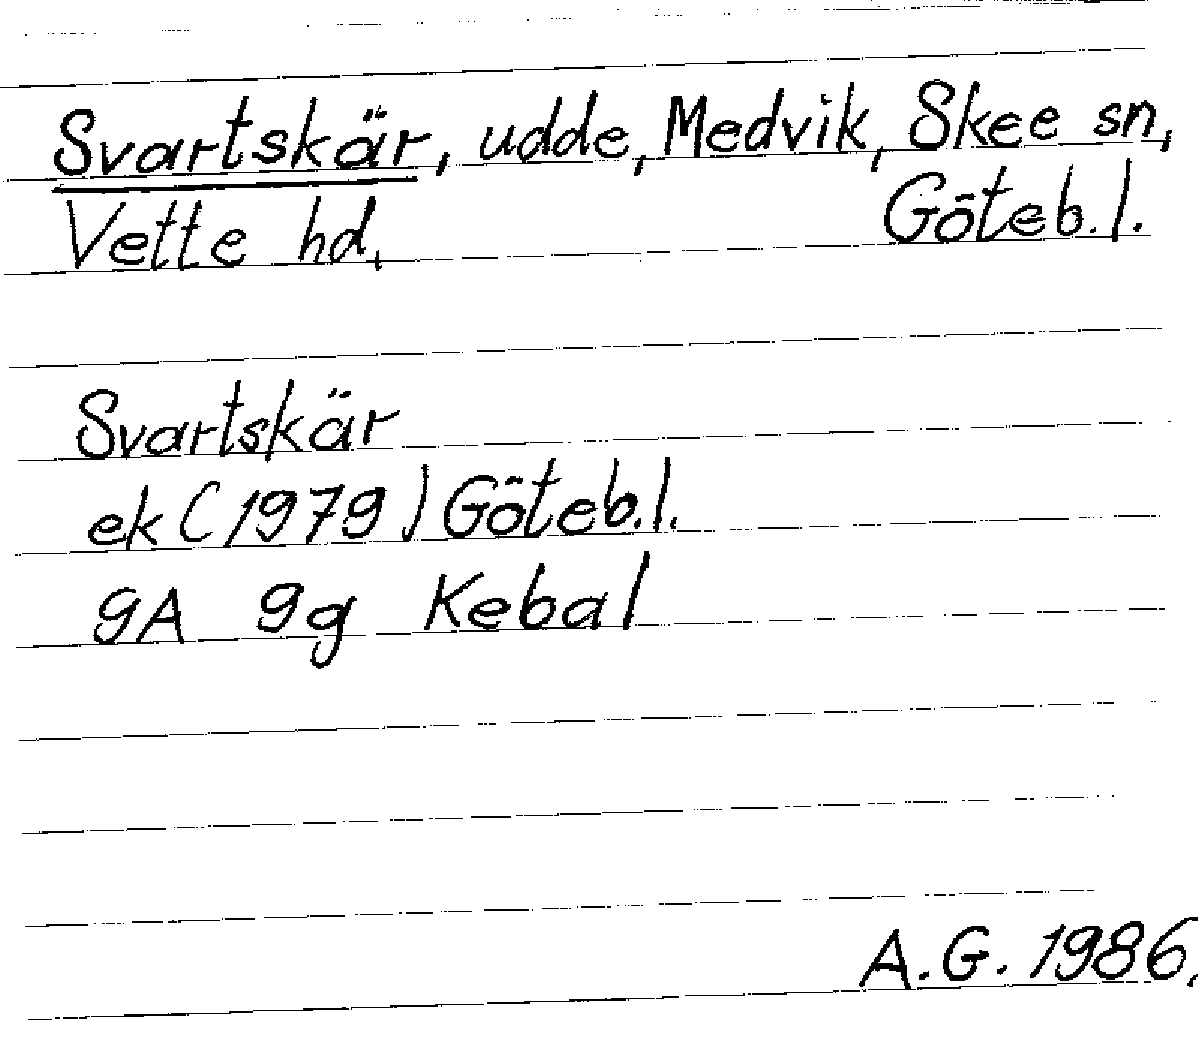 Svartskär, udde, Medvik, Skee sn,
Vette hd, Göteb.l.
Svartskär
ek (1979) Göteb.l.
9A 9g Kebal
A.G. 1986.